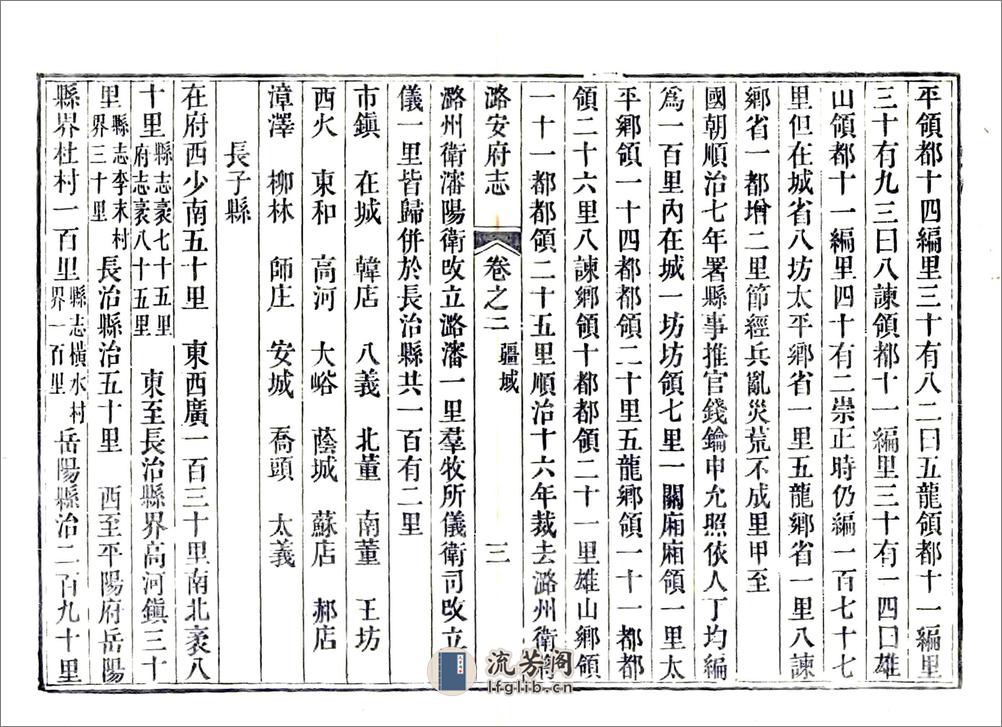 平領都十四編里三十有八二曰五龍領都十一編里
三十有九三曰八諫領都十一編里三十有一四曰雄
山領都十一編里四十有二崇正時仍編一百七十七
里但在城省八坊太平鄉省一里五龍鄉省一里八諫
鄉省一都增二里節經兵亂災荒不成里甲至
國朝順治七年署縣事推官錢鑰申允照依人丁均編
爲一百里內在城一坊坊領七里一關廂廂領一里太
平鄉領一十四都都領二十里五龍鄉領一十一都都
領二十六里八諫鄉領十都都領二十一里雄山鄉領
一十一都都領二十五里順治十六年裁去潞州衛
潞安府志 卷之二 疆域 三
潞州衛瀋陽衛攺立潞瀋一里羣牧所儀衛司攺立
儀一里皆歸併於長治縣共一百有二里
市鎮 在城 韓店 八義 北董 南董 王坊
西火 東和 高河 大峪 蔭城 蘇店 郝店
漳澤 柳林 師庄 安城 喬頭 太義
長子縣
在府西少南五十里 東西廣一百三十里南北袤八
十里縣志袤七十五里府志袤八十五里 東至長治縣界高河鎮三十
里縣志李末村界三十里 長治縣治五十里 西至平陽府岳陽
縣界杜村一百里縣志橫水村界一百里 岳陽縣治二百九十里
流芳阁
lfglib.cn